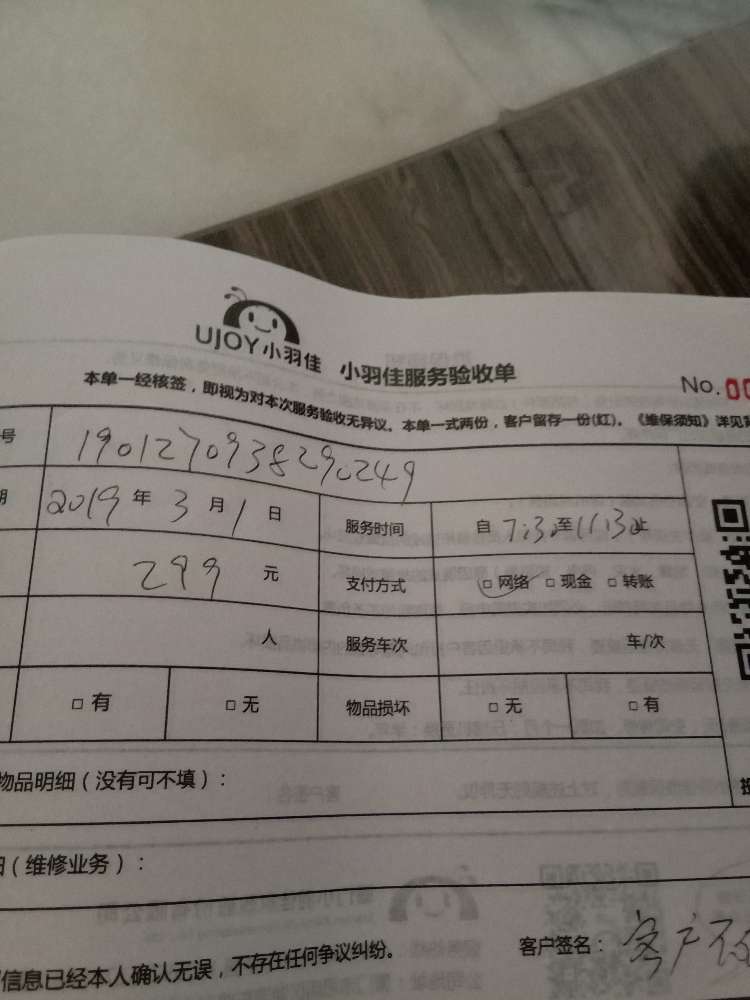 UJOY小羽佳 小羽佳服务验收单
No. 00
本单一经核签，即视为对本次服务验收无异议。本单一式两份，客户留存一份(红)。《维保须知》详见
号 1901270938290249
期 2019 年 3 月 1 日 服务时间 自 7:30 至 11:30 止
299 元 支付方式 □ 网络 □ 现金 □ 转账
人 服务车次 车/次
□ 有 □ 无 物品损坏 □ 无 □ 有
物品明细（没有可不填）：
（维修业务）：
信息已经本人确认无误，不存在任何争议纠纷。 客户签名： 客户不在